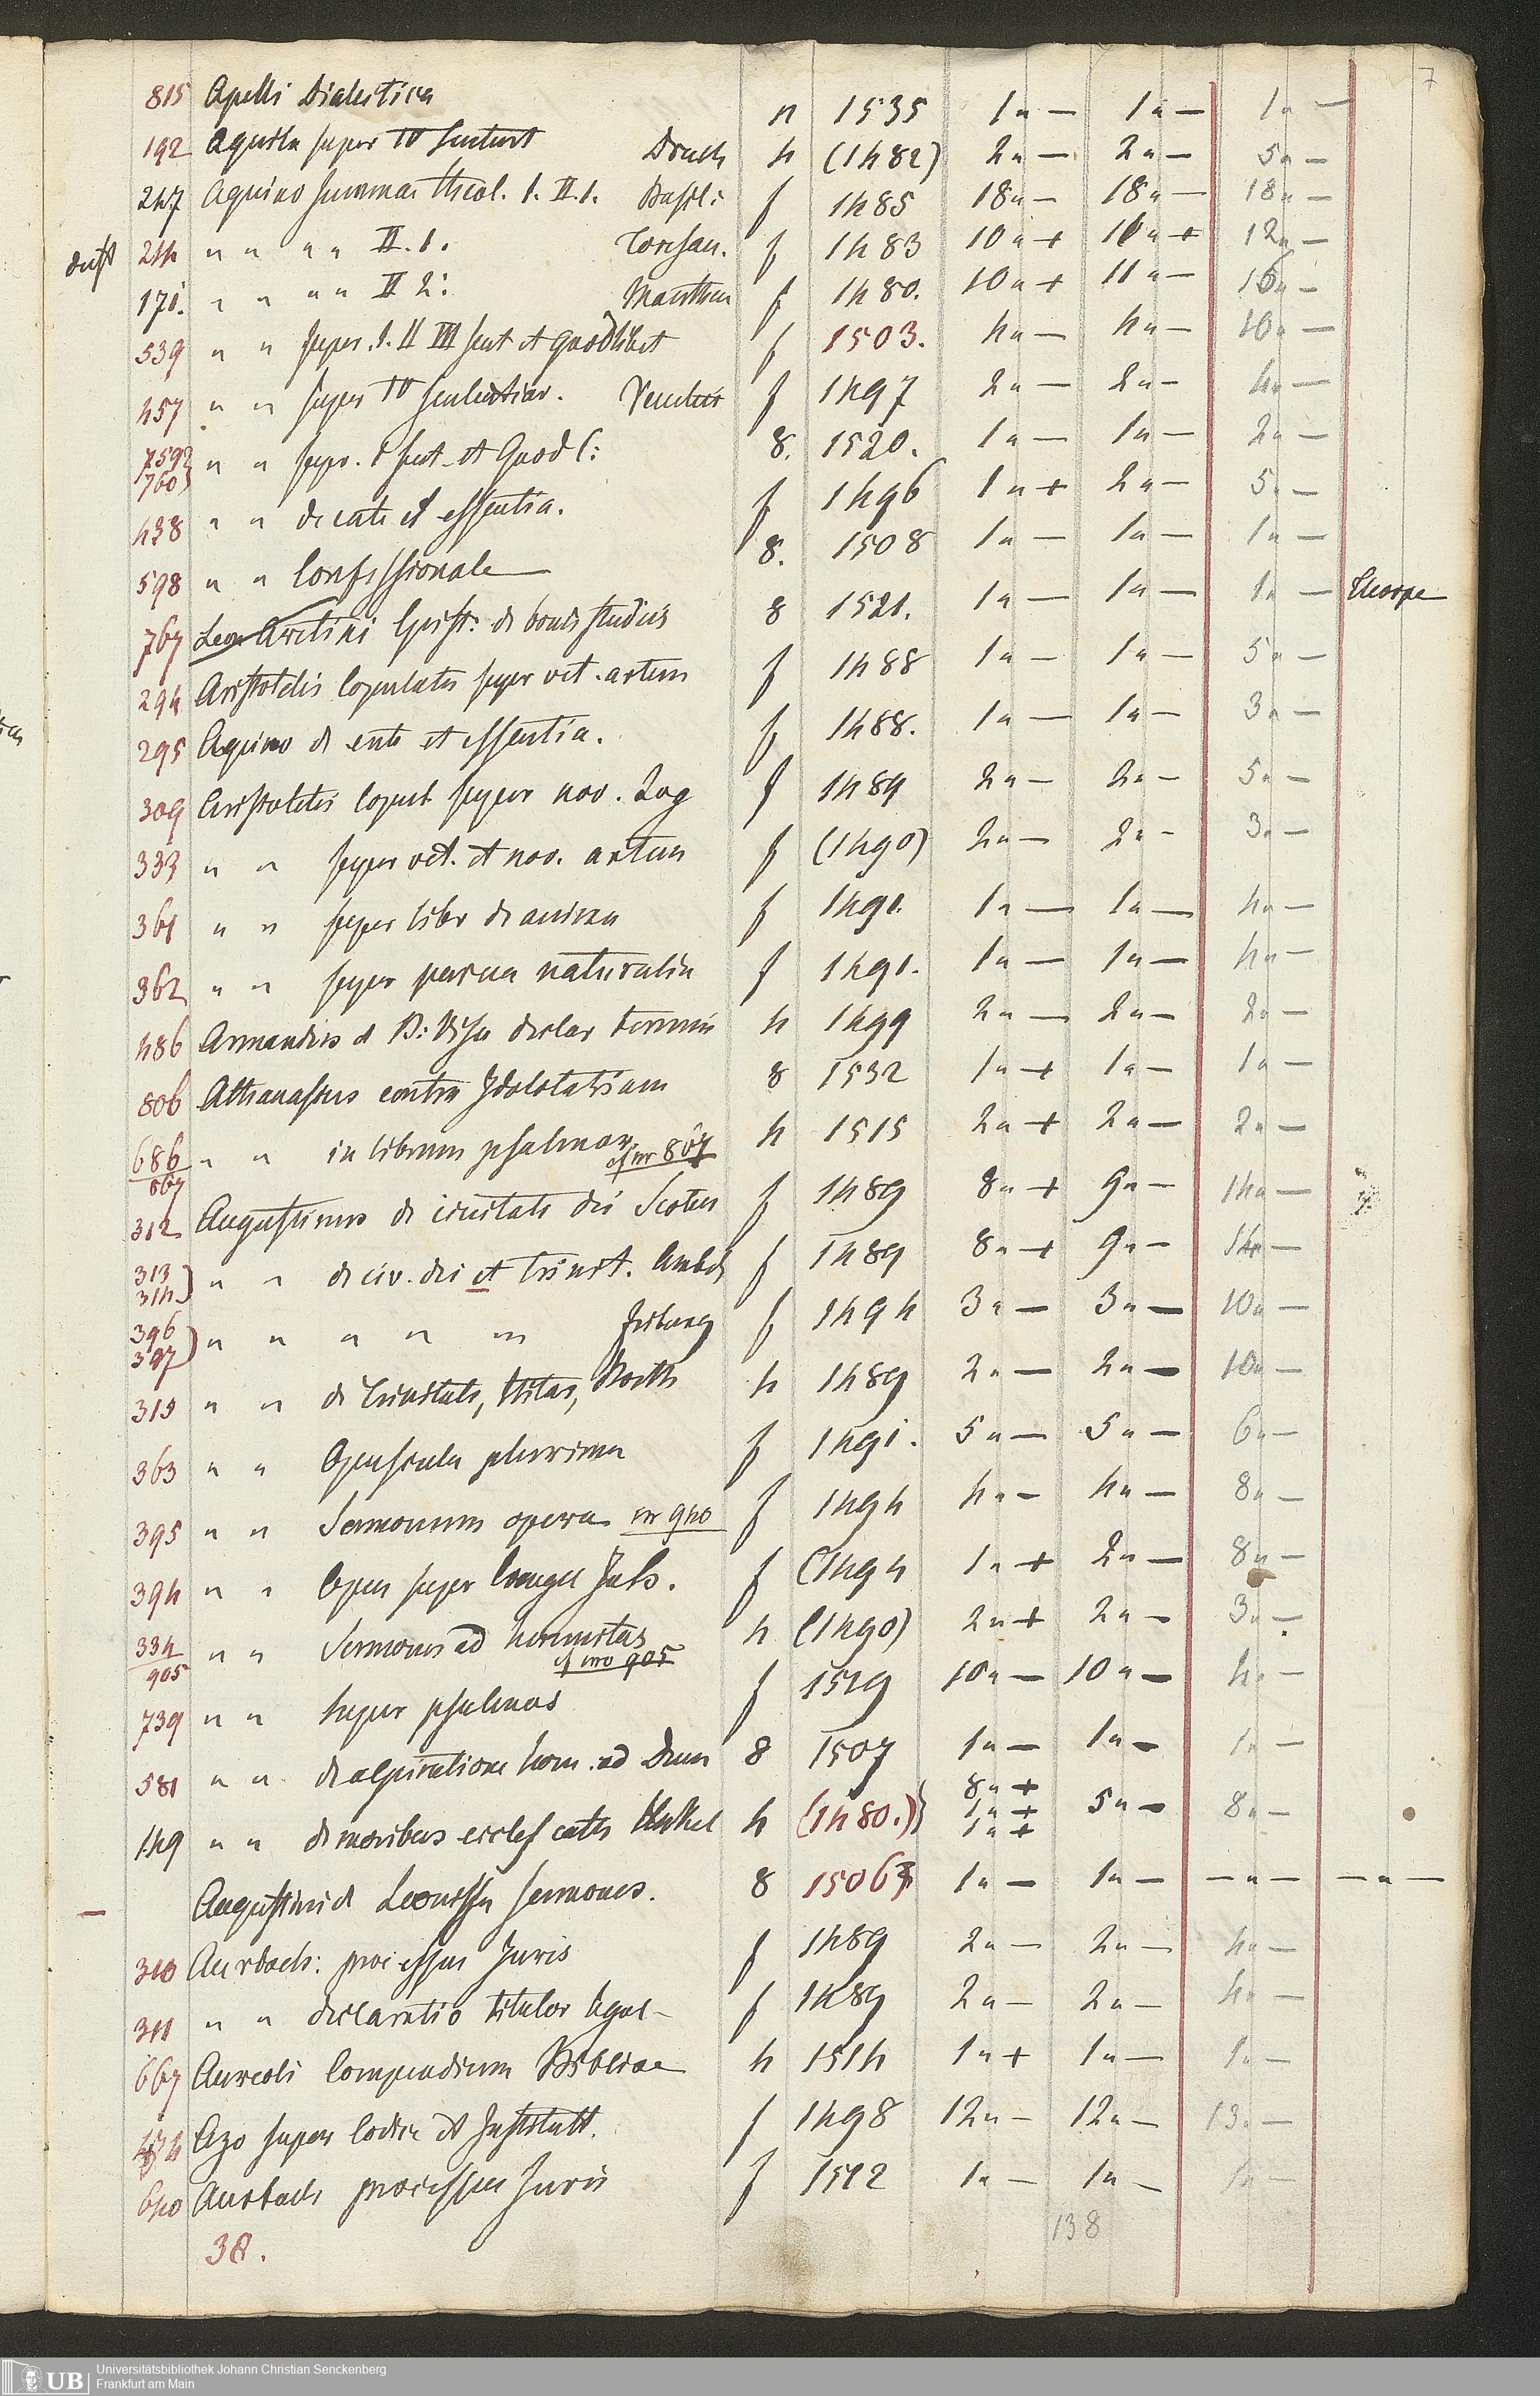 7
815 Apelli Dialectica n 1535 1 " — 1 " — 1 " —
192 Aquila super IV Sentent Drach 4 (1482) 2 " — 2 " — 5 " —
247 Aquino summae theol. I. II. 1. Basil: f 1485 18 " — 18 " — 18 " —
214 " " " " II. 1. f 1483 10 " + 10 " + 12 " —
170. " " " " II 2: Manthen f 1480. 10 " + 11 " — 16 " —
539 " " super. I. II III sent et quodlibet f 1503. 4 " — 4 " — 10 " —
457 " " super IV sententiar. f 1497 2 " — 2 " — 4 " —
759 760) " " super. I sent et Quod l: 8. 1520. 1 " — 1 " — 2 " —
438 " " de ente et essentia. f 1496 1 " + 2 " — 5 " —
598 " " Confessionale 8. 1508 1 " — 1 " — 1 " —
767 Leon Aretini Epist: de bonis studiis 8 1521. 1 " — 1 " — 1 " —
294 Aristotelis Copulata super vet. artem f 1488 1 " — 1 " — 5 " —
295 Aquino de ente et essentia. f 1488. 1 " — 1 " — 3 " —
309 Aristotelis Copul super nov. Log f 1489 2 " — 2 " — 5 " —
333 " " super vet. et nov. artem f (1490) 2 " — 2 " — 3 " —
361 " " super libr de anima f 1491. 1 " — 1 " — 4 " —
362 " " super parua naturalia f 1491. 1 " — 1 " — 4 " —
486 Armandus d B: Visu declar termin 4 1499 2 " — 2 " — 2 " —
806 Athanasius contra Idololatriam 8 1532 1 " + 1 " — 1 " —
686 867 " " in librum psalmor. cf nr 867 4 1515 2 " + 2 " — 2 " —
312 Augustinus de ciuitate dei Scoten f 1489 8 " + 9 " — 14 " —
313 314) " " de civ. dei et trinit. Amb f 1489 8 " + 9 " — 14 " —
396 397) " " " " " Friburg f 1494 3 " — 3 " — 10 " —
315 " " de Trinitate, 4 1489 2 " — 2 " — 10 " —
363 " " Opuscula plurima f 1491. 5 " — 5 " — 6 " —
395 " " Sermonum opera nr 940 f 1494 4 " — 4 " — 8 " —
394 " " Opus super Evangel Joh. f (1494 1 " + 2 " — 8 " —
334 905 " " Sermones ad heremitas cf nro 905 4 (1490) 2 " + 2 " — 3 " —
739 " " super psalmos f 1519 10 " — 10 " — 4 " —
581 " " de aspiratione hom. ad Deum 8 1507 1 " — 1 " — 1 " —
149 " " de moribus eccles cath 4 (1480.)} 8 " + 1 " + 1 " + 5 " — 8 " —
— Augustini d Leonissa sermones. 8 1503 1 " — 1 " — — " — — " —
310 Aurbach: processus Juris f 1489 2 " — 2 " — 4 " —
311 " " declaratio titulor legal— f 1489 2 " — 2 " — 4 " —
667 Aureoli Compendium Bibliae 4 1514 1 " + 1 " — 1 " —
474 Azo super Codice et Institutt. f 1498 12 " — 12 " — 13 " —
640 Aurbach processus Juris f 1512 1 " — 1 " — 1 " —
38. 138
UB Universitätsbibliothek Johann Christian Senckenberg
Frankfurt am Main